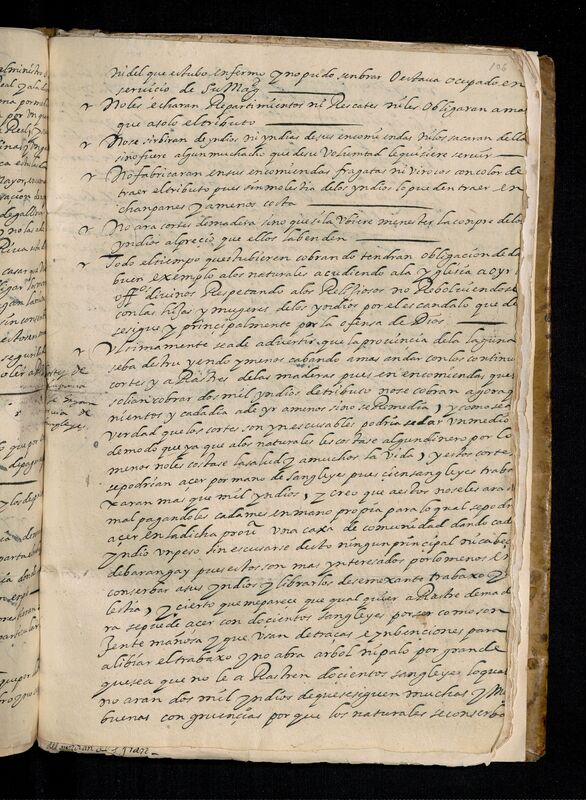 106
ni del que estubo enfermo y no pudo senbrar o estava ocupado en
servicio de Su Magd
No les echaran Repartimientos ni Rescates ni les obligaran a mas
que a solo el tributo
No se sirbiran de yndios ni yndias de sus encomiendas ni los sacaran de ellas
sino fuere algun muchacho que de su voluntad le quisiere servir
No fabricaran en sus encomiendas fragatas ni virocos con color de
traer el tributo pues sin molestia de los yndios lo pueden traer en
chanpanes y a menos costa
No ara cortes de madera sino que si la ubiere menester la conpre de los
yndios al precio que ellos la benden
Todo el tiempo que stubieren cobrando tendran obligacion de dar
buen exemplo a los naturales acudiendo a la yglesia a oyr
offos divinos Respetando a los Relissiosos no Rebolviendose
con las hijas y mugeres de los yndios por el escandalo que de
se sigue y principalmente por la ofensa de Dios
Ultimamente se a de advertir que la provincia de la laguna
se ba destruyendo y menos cabando a mas andar con los continuos
cortes y aRastres de las maderas pues en encomiendas que
solian cobrar dos mil yndios de tributo no se cobran agora
nientos y cada dia a de yr a menos si no se Remedia, y como sea
verdad que los cortes son ynescusables podria se dar un medio
de modo que ya que a los naturales les costase algun dinero por lo
menos no les costase la salud y a muchos la vida, y estos cortes
se podrian acer por mano de sangleyes pues cien sangleyes traba
xaran mas que mil yndios, y creo que a estos no se les ara
mal pagandoles cada mes en mano propia para lo qual se podria
acer en la dicha provª una caxa de comunidad dando cada
yndio un peso sin escusarse desto ningun principal ni cabeça
de barangay pues estos son mas ynteresados por lo menos
conserbar a sus yndios y librarlos de semexante trabaxo y
lestia, y cierto que me parece que qualquier aRastre de made
ra se puede acer con docientos sangleyes por ser como son
Jente mañosa y que usan de traças e ynbenciones para
alibiar el trabaxo y no abra arbol ni palo por grande
que sea que no le aRastren docientos sangleyes lo qual
no aran dos mil yndios de que se siguen muchas y muy
buenas congruencias porque los naturales se conserba